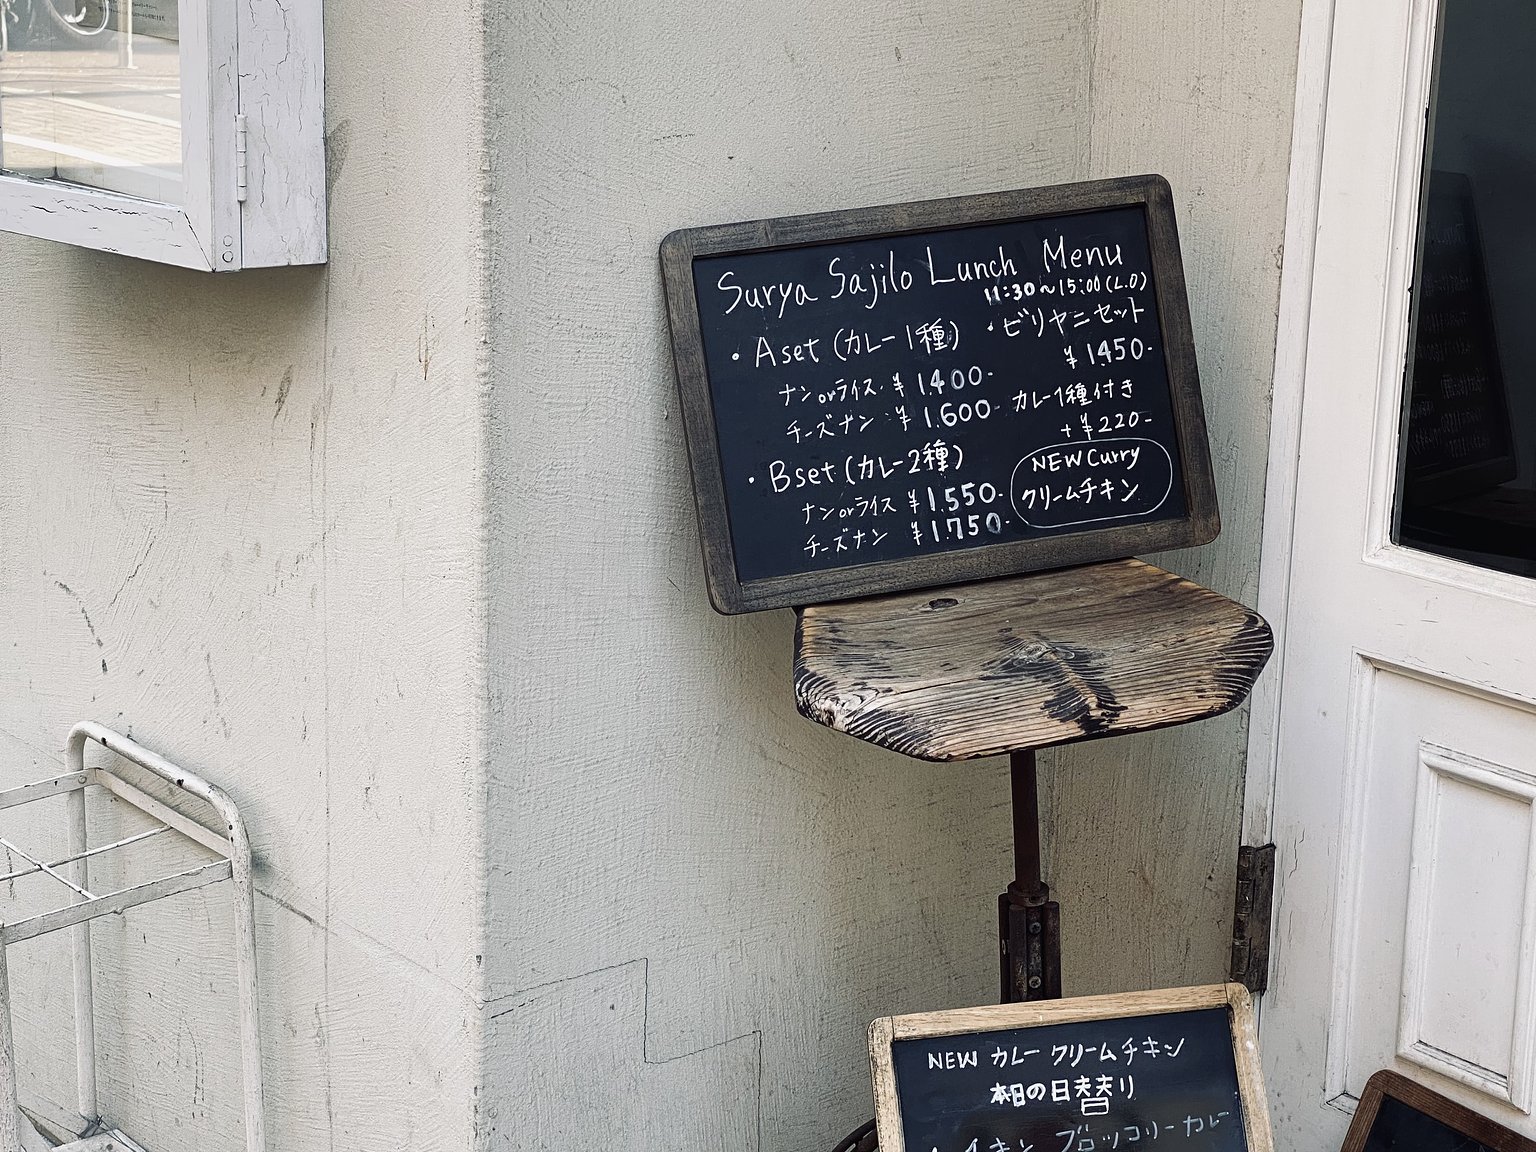 Surya Sajilo Lunch Menu
11:30~15:00(L.O)
・Aset (カレー1種)
ナンorライス ¥1.400-
チーズナン ¥1.600-
・Bset (カレー2種)
ナンorライス ¥1.550-
チーズナン ¥1.750-
・ビリヤニセット
¥1450-
カレー1種付き
+¥220-
NEW Curry
クリームチキン
NEW カレー クリームチキン
本日の日替り
チキン ブロッコリーカレー